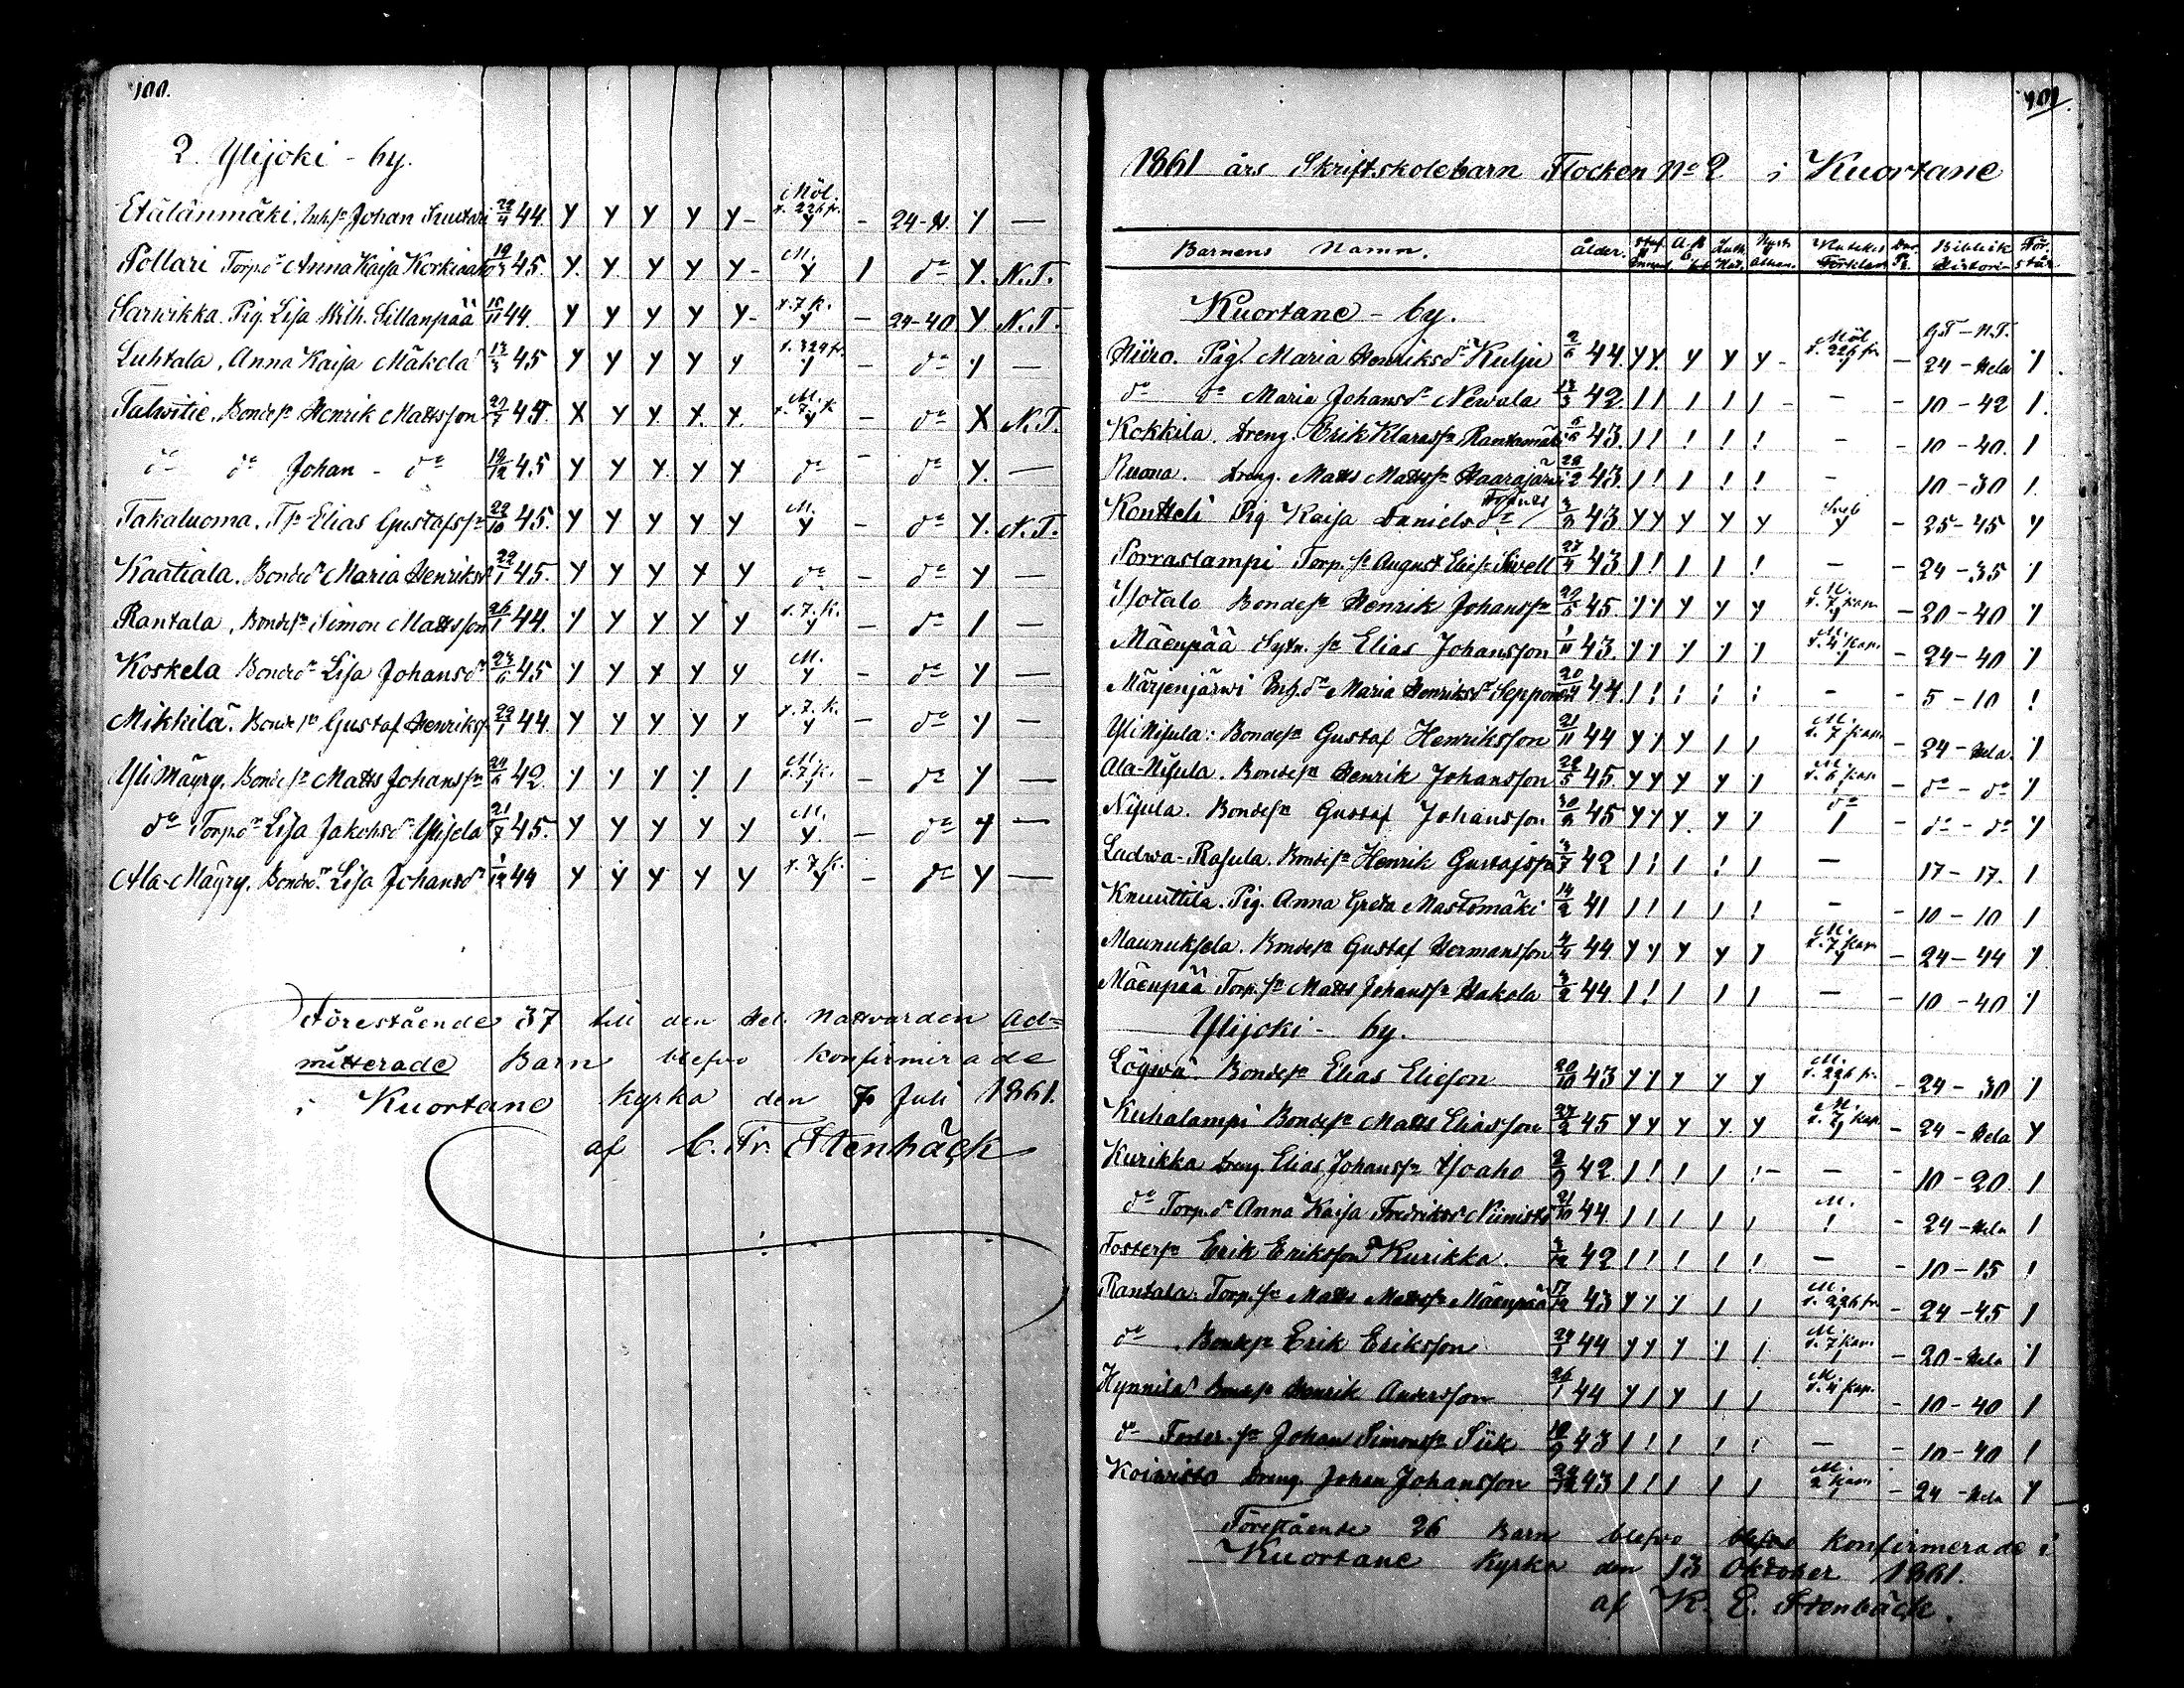 100.
2. Ylijoki - by.
Etälänmäki. Inh.sn Johan Kustari 22/4 44. Y Y Y Y Y - Möl. t. 226 fr. Y - 24-N. Y —
Pollari Torp.dr Anna Kaisa Korkiaaho 19/3 45. Y. Y Y Y Y - M. Y 1 do Y. N.T.
Sarwikka. Pig. Lisa Wilh. Sillanpää 18/11 44. Y Y Y Y Y - t. 7 k. Y - 24-40 Y N.T.
Luhtala, Anna Kaisa Mäkelä 13/3 45 Y Y Y Y Y t. 324 fr. Y - do Y —
Talwitie, Bondesn Henrik Mattsson 29/7 44. X Y Y X. X. M. t. 7 k Y - do X N.T.
do do Johan - do 19/12 45 Y Y Y Y Y do - do Y. —
Takaluoma. T.sn Elias Gustafssn 22/10 45. Y Y Y Y Y M. Y - do Y. N.T.
Kaatiala. Bondedr Maria Henriksdr 29/1 45. Y Y Y Y Y do - do Y —
Rantala, Bondesn Simon Mattsson 26/1 44. Y Y Y Y Y t. 7. k. Y - do 1 —
Koskela Bondedr Lisa Johansdr 23/6 45 Y Y Y Y Y M. Y - do Y —
Mikkilä. Bondesn Gustaf Henriks. 29/1 44. Y Y Y Y Y t. 7. k. Y - do Y —
Yli Mäyry. Bondesn Matts Johanssn 24/6 42. Y Y Y Y 1 M. t. 7 k. - do Y —
do Torp.dr Lisa Jakobsdr Ylisela 21/7 45. Y Y Y Y Y M. Y. - do Y —
Ala-Mäyry. Bondedr Lisa Johansdr 1/12 44 Y Y Y Y Y t. 7 k. Y - do Y —
Förestående 37 till den Hel. Nattvarden Ad=
mitterade Barn blefvo konfirmerade
i Kuortane kyrka den 7 Juli 1861.
af C. Fr. Stenbäck
101.
1861 års Skriftskolebarn Flocken No 2 i Kuortane
Barnens Namn. Ålder. Luth. Hust. Biblisk
Förklar. Historie- står
Kuortane - by.
G.T - N.T.
Hiiro. Pig. Maria Henriksdr Kulju 2/6 44. Y Y. Y Y Y - Möl t. 226 fr Y - 24 - Hela Y
do do Maria Johansdr Newala 13/3 42. 1 1 1 1 1 - - - 10 - 42 1.
Kokkila. Dreng. Erik Klarassn Rantamäki 5/6 43. 1 ! ! ! ! - - 10 - 40. 1
Ruona. Dreng. Matts Mattssn Haarajärwi 28/12 43. 1 ! 1 ! ! - 10 - 30 1.
Kontteli Pig. Kaisa Daniels dr 43 Y Y Y Y Y Y - 25 - 45 Y
Porraslampi Torp.sn August Elies. Sivell 27/4 43 1 ! 1 1 ! - - 24 - 35 Y
Isotalo Bondesn Henrik Johanssn 29/5 45. Y Y Y Y Y M. t. 7 kap. Y - 20 - 40 Y
Mäenpää Sytn. sn Elias Johansson 1/11 43. Y Y Y Y Y M. t. 4 kap. 1 - 24 - 40 Y
Märjenjärwi Inh.dr Maria Henriksdr Sepponen 44. 1 ! ! ! ! - - 5 - 10 !
Yli Nisula. Bondesn Gustaf Henriksson 21/11 44 Y Y Y 1 1 M. t. 7 kap. - 24 - Hela. Y
Ala-Nisula. Bondesn Henrik Johansson 28/5 45. Y Y Y Y Y M. t. 6 kap. - do - do Y
Nisula. Bondesn Gustaf Johansson 45 Y Y Y. Y Y do 1 - do - do Y
Ladwa-Rasula. Bondesn Henrik Gustafssn 42 1 ! 1 ! 1 - 17 - 17. 1
Knuuttila. Pig. Anna Greta Mastomäki 14/2 41 1 ! 1 1 ! - - 10 - 10 1
Maunuksela. Bondesn Gustaf Hermansson 4/4 44. Y Y Y Y Y M. t. 7 kap. Y - 24 - 44 Y.
Mäenpää Torp.sn Matts Johanssn Hakola 44 1 ! 1 1 1 - - 10 - 40 Y
Ylijoki - by.
Löywä. Bondesn Elias Elieson 20/10 43 Y Y Y Y Y M. t. 226 fr. - 24 - 30 Y
Kuhalampi Bondesn Matts Eliasson 27/2 45 Y Y Y Y. Y M. t. 7 kap. - 24 - Hela Y
Kurikka Dreng. Elias Johanssn Isoaho 42. 1 ! 1 1 ! - - - 10 - 20. 1
do Torp.dr Anna Kaisa Fredriksdr Niinistö 21/10 44. 1 1 1 1 1 M. 1 - 24 - Hela 1
Fostersn Erik Eriksson Kurikka. 42 1 ! ! 1 ! - - 10 - 15 !
Rantala. Torp.sn Matts Mattssn Mäenpää 17/12 43 Y Y Y 1 1 M. t. 226 fr 1 - 24 - 45 1
do. Bondesn Erik Eriksson 44 Y Y Y 1 1 M. t. 7 kap. 1 - 20 - Hela Y
Hynnilä Bondesn Henrik Andersson 26/1 44 Y 1 Y 1 1 M. t. 4 kap. 1 - 10 - 40 1
do Foster.sn Johan Simonssn Siik 43 1 ! 1 1 ! - - 10 - 40 1
Koiwisto Dreng. Johan Johansson 43 1 ! 1 1 1 M. 2 kap. 1 - 24 - Hela Y
Förestående 26 Barn blefvo blefvo konfirmerade i
Kuortane Kyrka den 13 Oktober 1861.
af K. E. Stenbäck.